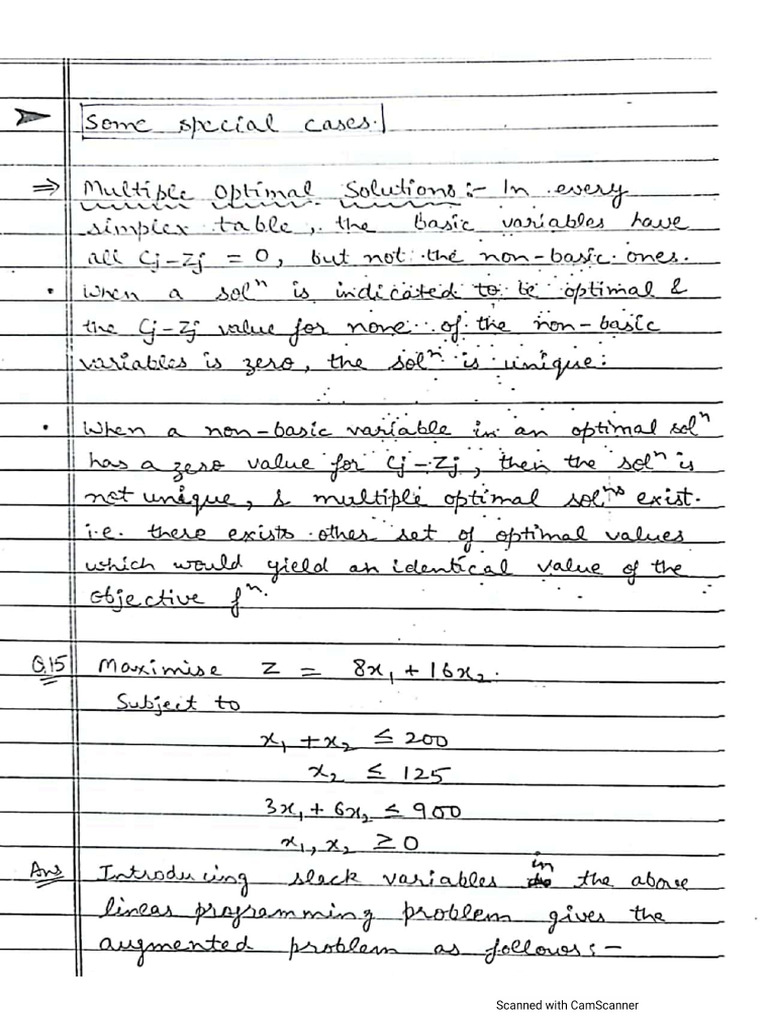 Some special cases.
⇒ Multiple Optimal Solutions:- In every
simplex table, the basic variables have
all Cj-Zj = 0, but not the non-basic ones.
• When a solⁿ is indicated to be optimal &
the Cj-Zj value for none of the non-basic
variables is zero, the solⁿ is unique.
• When a non-basic variable in an optimal solⁿ
has a zero value for Cj-Zj, then the solⁿ is
not unique, & multiple optimal solⁿˢ exist.
i.e. there exists other set of optimal values
which would yield an identical value of the
objective fⁿ.
Q.15 Maximise Z = 8x₁ + 16x₂.
Subject to
x₁ + x₂ ≤ 200
x₂ ≤ 125
3x₁ + 6x₂ ≤ 900
x₁, x₂ ≥ 0
Ans Introducing slack variables in the above
linear programming problem gives the
augmented problem as follows:-
Scanned with CamScanner